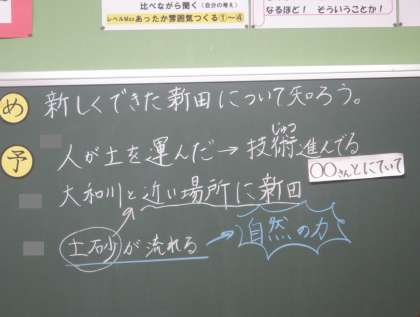 比べながら聞く（自分の考え）
レベルMax あったか雰囲気つくる①～④
なるほど！ そういうことか！
め 新しくできた新田について知ろう。
じゅつ
予 人が土を運んだ→技術進んでる
〇〇さんとにていて
大和川と近い場所に新田
土石砂が流れる→自然の力